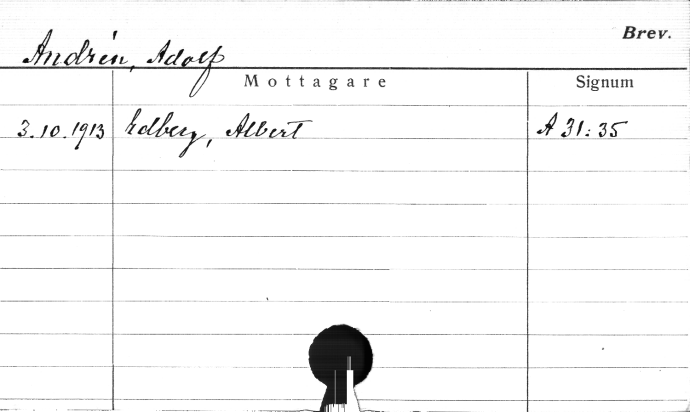 Brev.
Andrén, Adolf
Mottagare Signum
3.10.1913 Edberg, Albert A 31:35